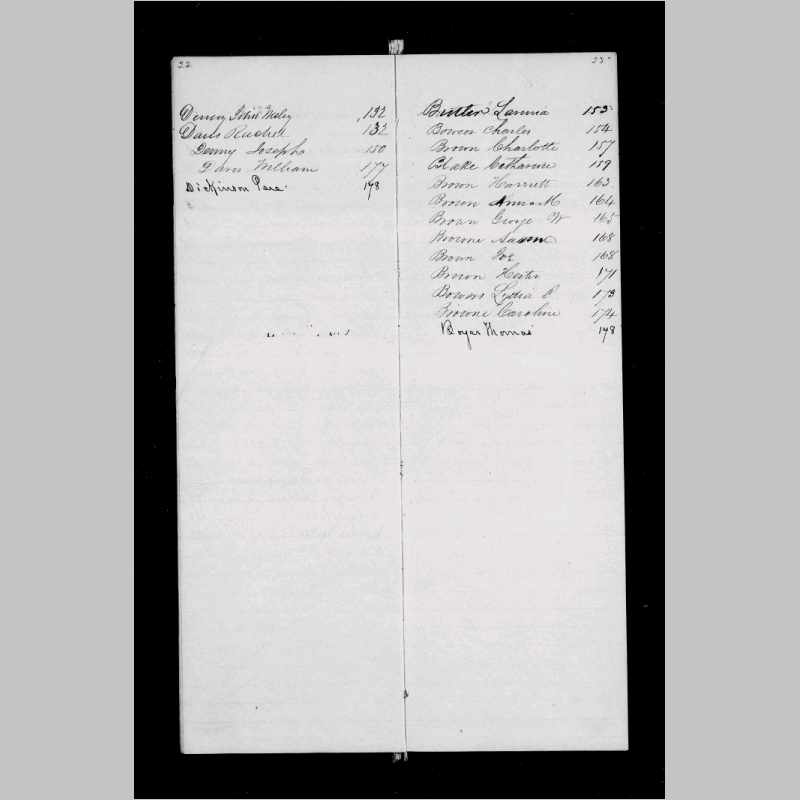 22
Denny John Wesley 132
Davis Rachel 132
Denny Joseph 150
Davis William 177
Dickinson 178
23
Butler 153
Bowen Charles 154
Brown Charlotte 157
Blake Catharine 159
Brown Harriett 163
Brown Anna M 164
Brown George W 165
Browne 168
Brown Joe 168
Brown Hester 171
Bowers Lydia 173
Browne Caroline 174
Boyer Thomas 178